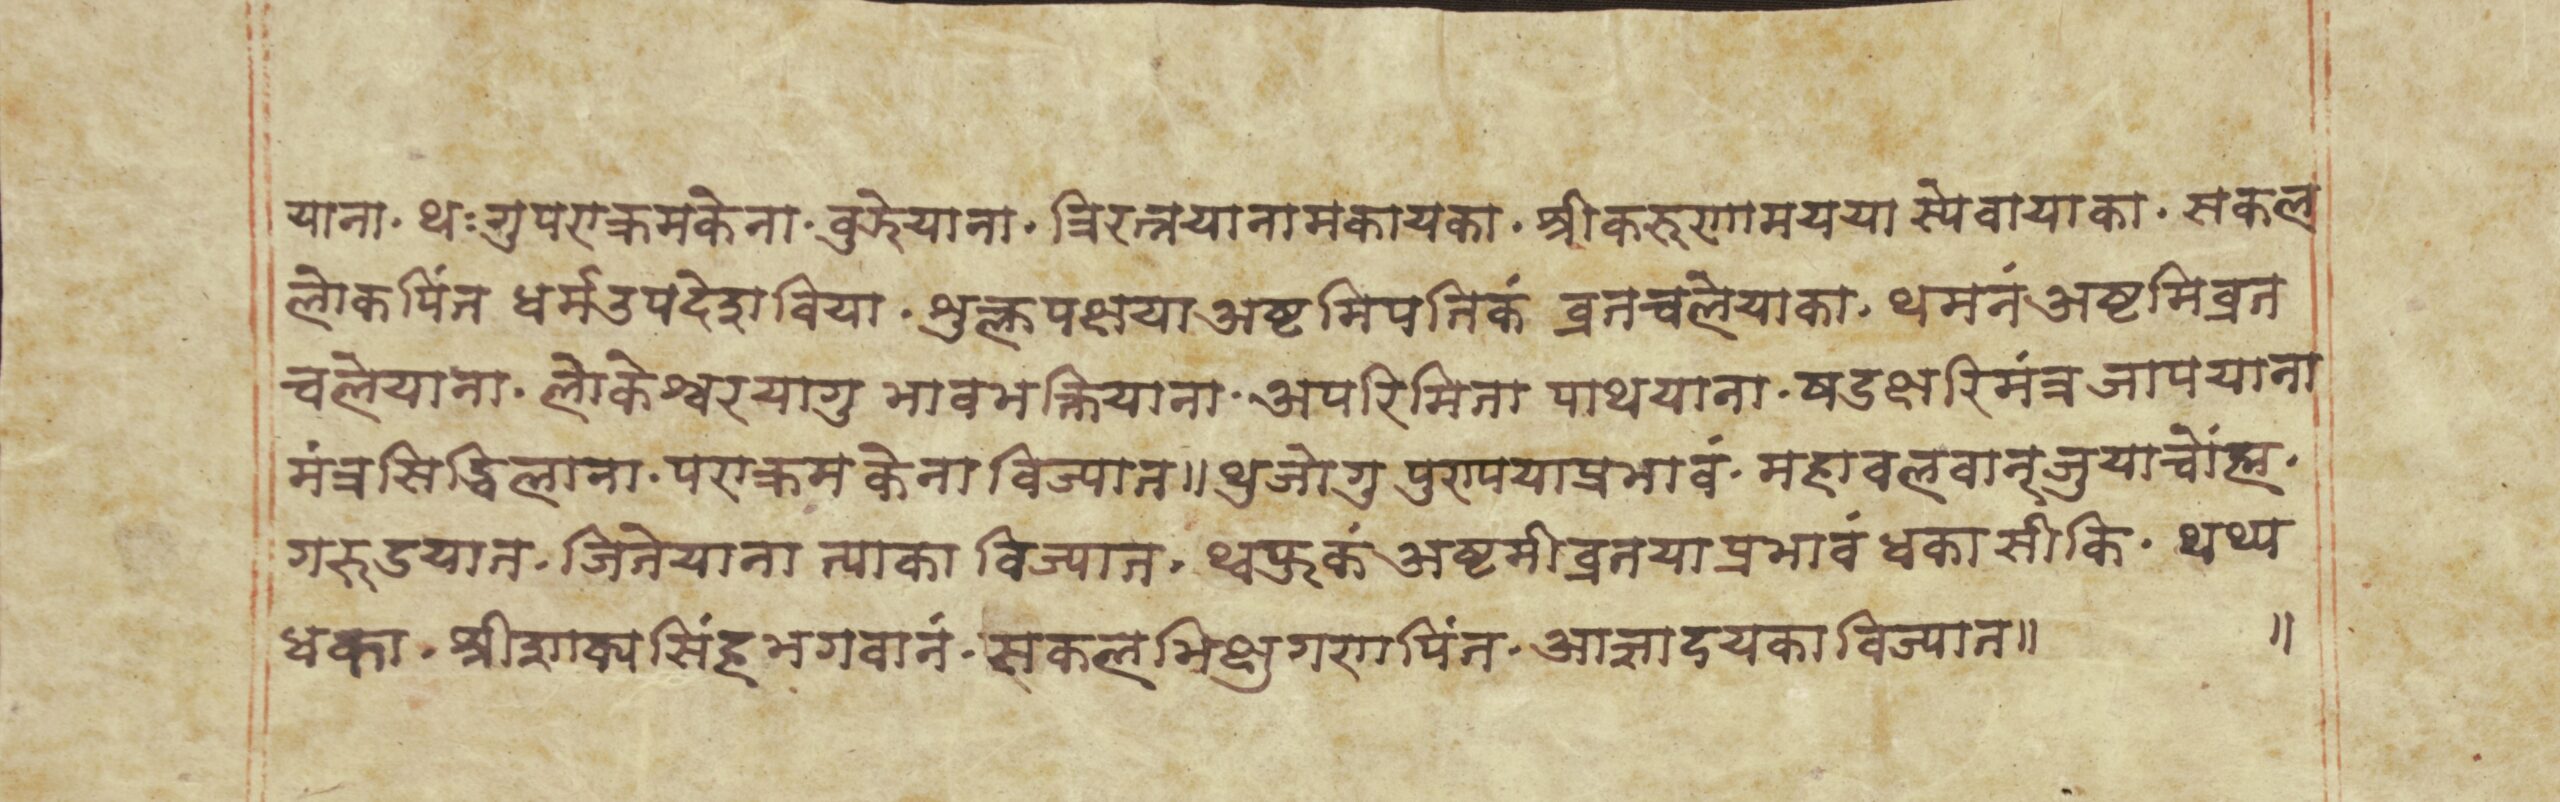 याना · थःगुपराक्रमकेना · वुझेयाना · त्रिरत्नयानामकायका · श्रीकरुणामयया स्येवायाका · सकल
लोकपिंत धर्मउपदेशविया · शुक्लपक्षया अष्टमिपतिकं व्रतचलेयाका · थमनं अष्टमिव्रत
चलेयाना · लोकेश्वरयागु भावभक्तियाना · अपरिमिता पाथयाना · षडक्षरिमंत्र जापयाना
मंत्रसिद्धिलाना · पराक्रम केना विज्यात ॥ थुजोगु पुराणपयाप्रभावं · महावलवान् जुयाचोंह्म ·
गरुडयात · जितेयाना त्याका विज्यात · थ्वफुकं अष्टमीव्रतयाप्रभावं धका सीकि · थथ्य
धका · श्रीशाक्यसिंह भगवानं · सकल भिक्षुगणपिंत · आज्ञादयका विज्यात ॥ ॥